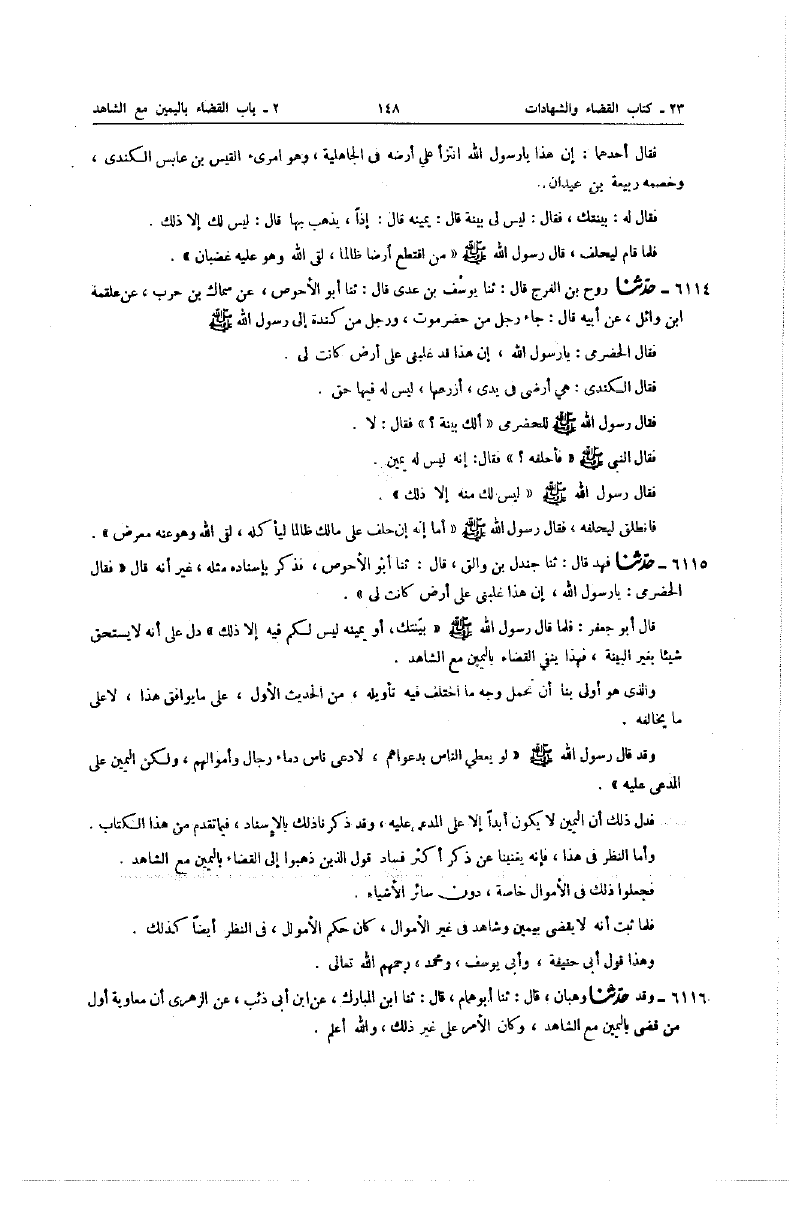 ٢٣ ـ كتاب القضاء والشهادات ١٤٨ ٢ ـ باب القضاء باليمين مع الشاهد
فقال أحدهما : إن هذا يارسول الله انتزأ علي أرضه فى الجاهلية ، وهو امرىء القيس بن عابس الكندى ،
وخصمه ربيعة بن عيدان .
فقال له : بينتك ، فقال : ليس لى بينة قال : يمينه قال : إذاً ، يذهب بها قال : ليس لك إلا ذلك .
فلما قام ليحلف ، قال رسول الله ﷺ « من اقتطع أرضا ظالما ، لقى الله وهو عليه غضبان » .
٦١١٤ ـ حدّثنا روح بن الفرج قال : ثنا يوسُف بن عدى قال : ثنا أبو الأحوص ، عن سماك بن حرب ، عن علقمة
ابن وائل ، عن أبيه قال : جاء رجل من حضرموت ، ورجل من كندة إلى رسول الله ﷺ
فقال الحضرمى : يارسول الله ، إن هذا قد غلبنى على أرض كانت لى .
فقال الكندى : هي أرضى فى يدى ، أزرعها ، ليس له فيها حق .
فقال رسول الله ﷺ للحضرمى « ألك بينة ؟ » فقال : لا .
فقال النبى ﷺ « فأحلفه ؟ » فقال : إنه ليس له يمين .
فقال رسول الله ﷺ « ليس لك منه إلا ذلك » .
فانطلق ليحلفه ، فقال رسول الله ﷺ « أما إنه إن حلف على مالك ظالما ليأكله ، لقى الله وهو عنه معرض » .
٦١١٥ ـ حدّثنا فهد قال : ثنا جندل بن والق ، قال : ثنا أبو الأحوص ، فذكر بإسناده مثله ، غير أنه قال « فقال
الحضرمى : يارسول الله ، إن هذا غلبنى على أرض كانت لى » .
قال أبو جعفر : فلما قال رسول الله ﷺ « بيّنتك ، أو يمينه ليس لكم فيه إلا ذلك » دل على أنه لايستحق
شيئا بغير البينة ، فهذا ينفي القضاء باليمين مع الشاهد .
والذى هو أولى بنا أن نحمل وجه ما اختلف فيه تأويله ، من الحديث الأول ، على مايوافق هذا ، لاعلى
ما يخالفه .
وقد قال رسول الله ﷺ « لو يعطي الناس بدعواهم ، لادعى ناس دماء رجال وأموالهم ، ولكن اليمين على
المدعى عليه » .
فدل ذلك أن اليمين لا يكون أبداً إلا على المدعى عليه ، وقد ذكرناذلك بالإسناد ، فيماتقدم من هذا الكتاب .
وأما النظر فى هذا ، فإنه يغنينا عن ذكر أكثر فساد قول الذين ذهبوا إلى القضاء باليمين مع الشاهد .
فجعلوا ذلك فى الأموال خاصة ، دون سائر الأشياء .
فلما ثبت أنه لايقضى بيمين وشاهد فى غير الأموال ، كان حكم الأموال ، فى النظر أيضاً كذلك .
وهذا قول أبى حنيفة ، وأبى يوسف ، ومحمد ، رحمهم الله تعالى .
٦١١٦ ـ وقد حدّثنا وهبان ، قال : ثنا أبوهمام ، قال : ثنا ابن المبارك ، عن ابن أبى ذئب ، عن الزهرى أن معاوية أول
من قضى باليمين مع الشاهد ، وكان الأمر على غير ذلك ، والله أعلم .